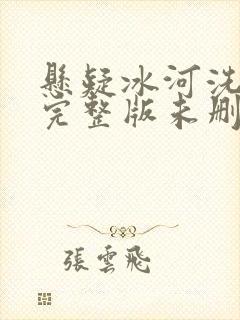 懸疑冰河洗
完整版未刪
張雲飛